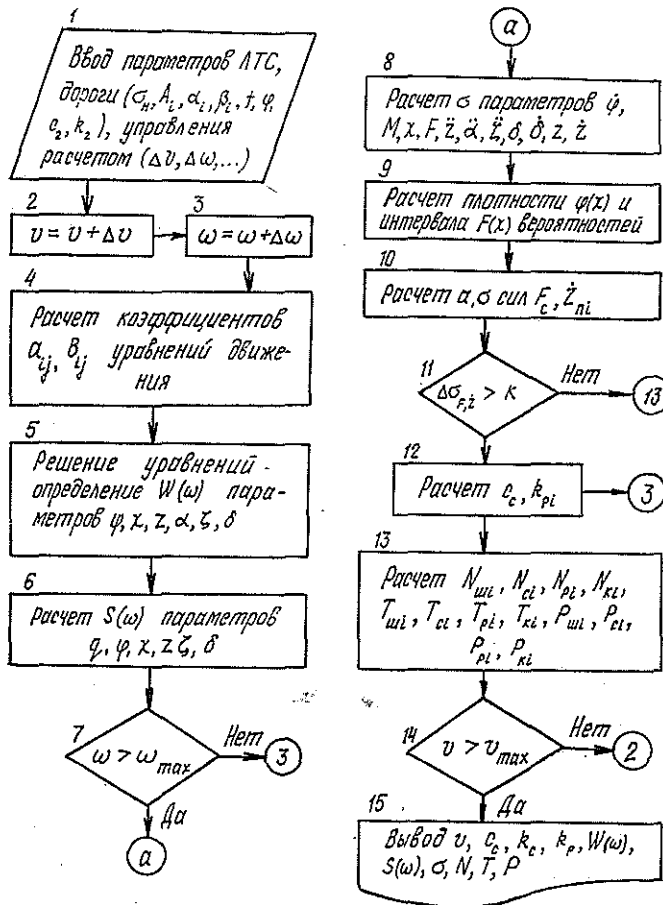 1
Ввод параметров АТС,
дороги (σн, Ai, αi, βi, t, φ,
c2, k2), управления
расчетом (Δv, Δω,...)
2
v = v + Δv
3
ω = ω + Δω
4
Расчет коэффициентов
aij, Bij уравнений движе-
ния
5
Решение уравнений -
определение W(ω) пара-
метров ψ, χ, z, α, ζ, δ
6
Расчет S(ω) параметров
q, φ, χ, z ζ, δ
7
ω > ωmax
Нет
3
Да
а
а
8
Расчет σ параметров φ̇,
M, χ, F, z̈, α̈, ζ̈, δ, δ̇, z, ż
9
Расчет плотности φ(x) и
интервала F(x) вероятностей
10
Расчет a, σ сил Fc, Żni
11
ΔσF,ż > K
Нет
13
12
Расчет cc, kpi
3
13
Расчет Nшi, Nci, Npi, Nкi,
Tшi, Tci, Tpi, Tкi, Pшi, Pci,
Ppi, Pкi
14
v > vmax
Нет
2
Да
15
Вывод v, cc, kc, kp, W(ω),
S(ω), σ, N, T, P